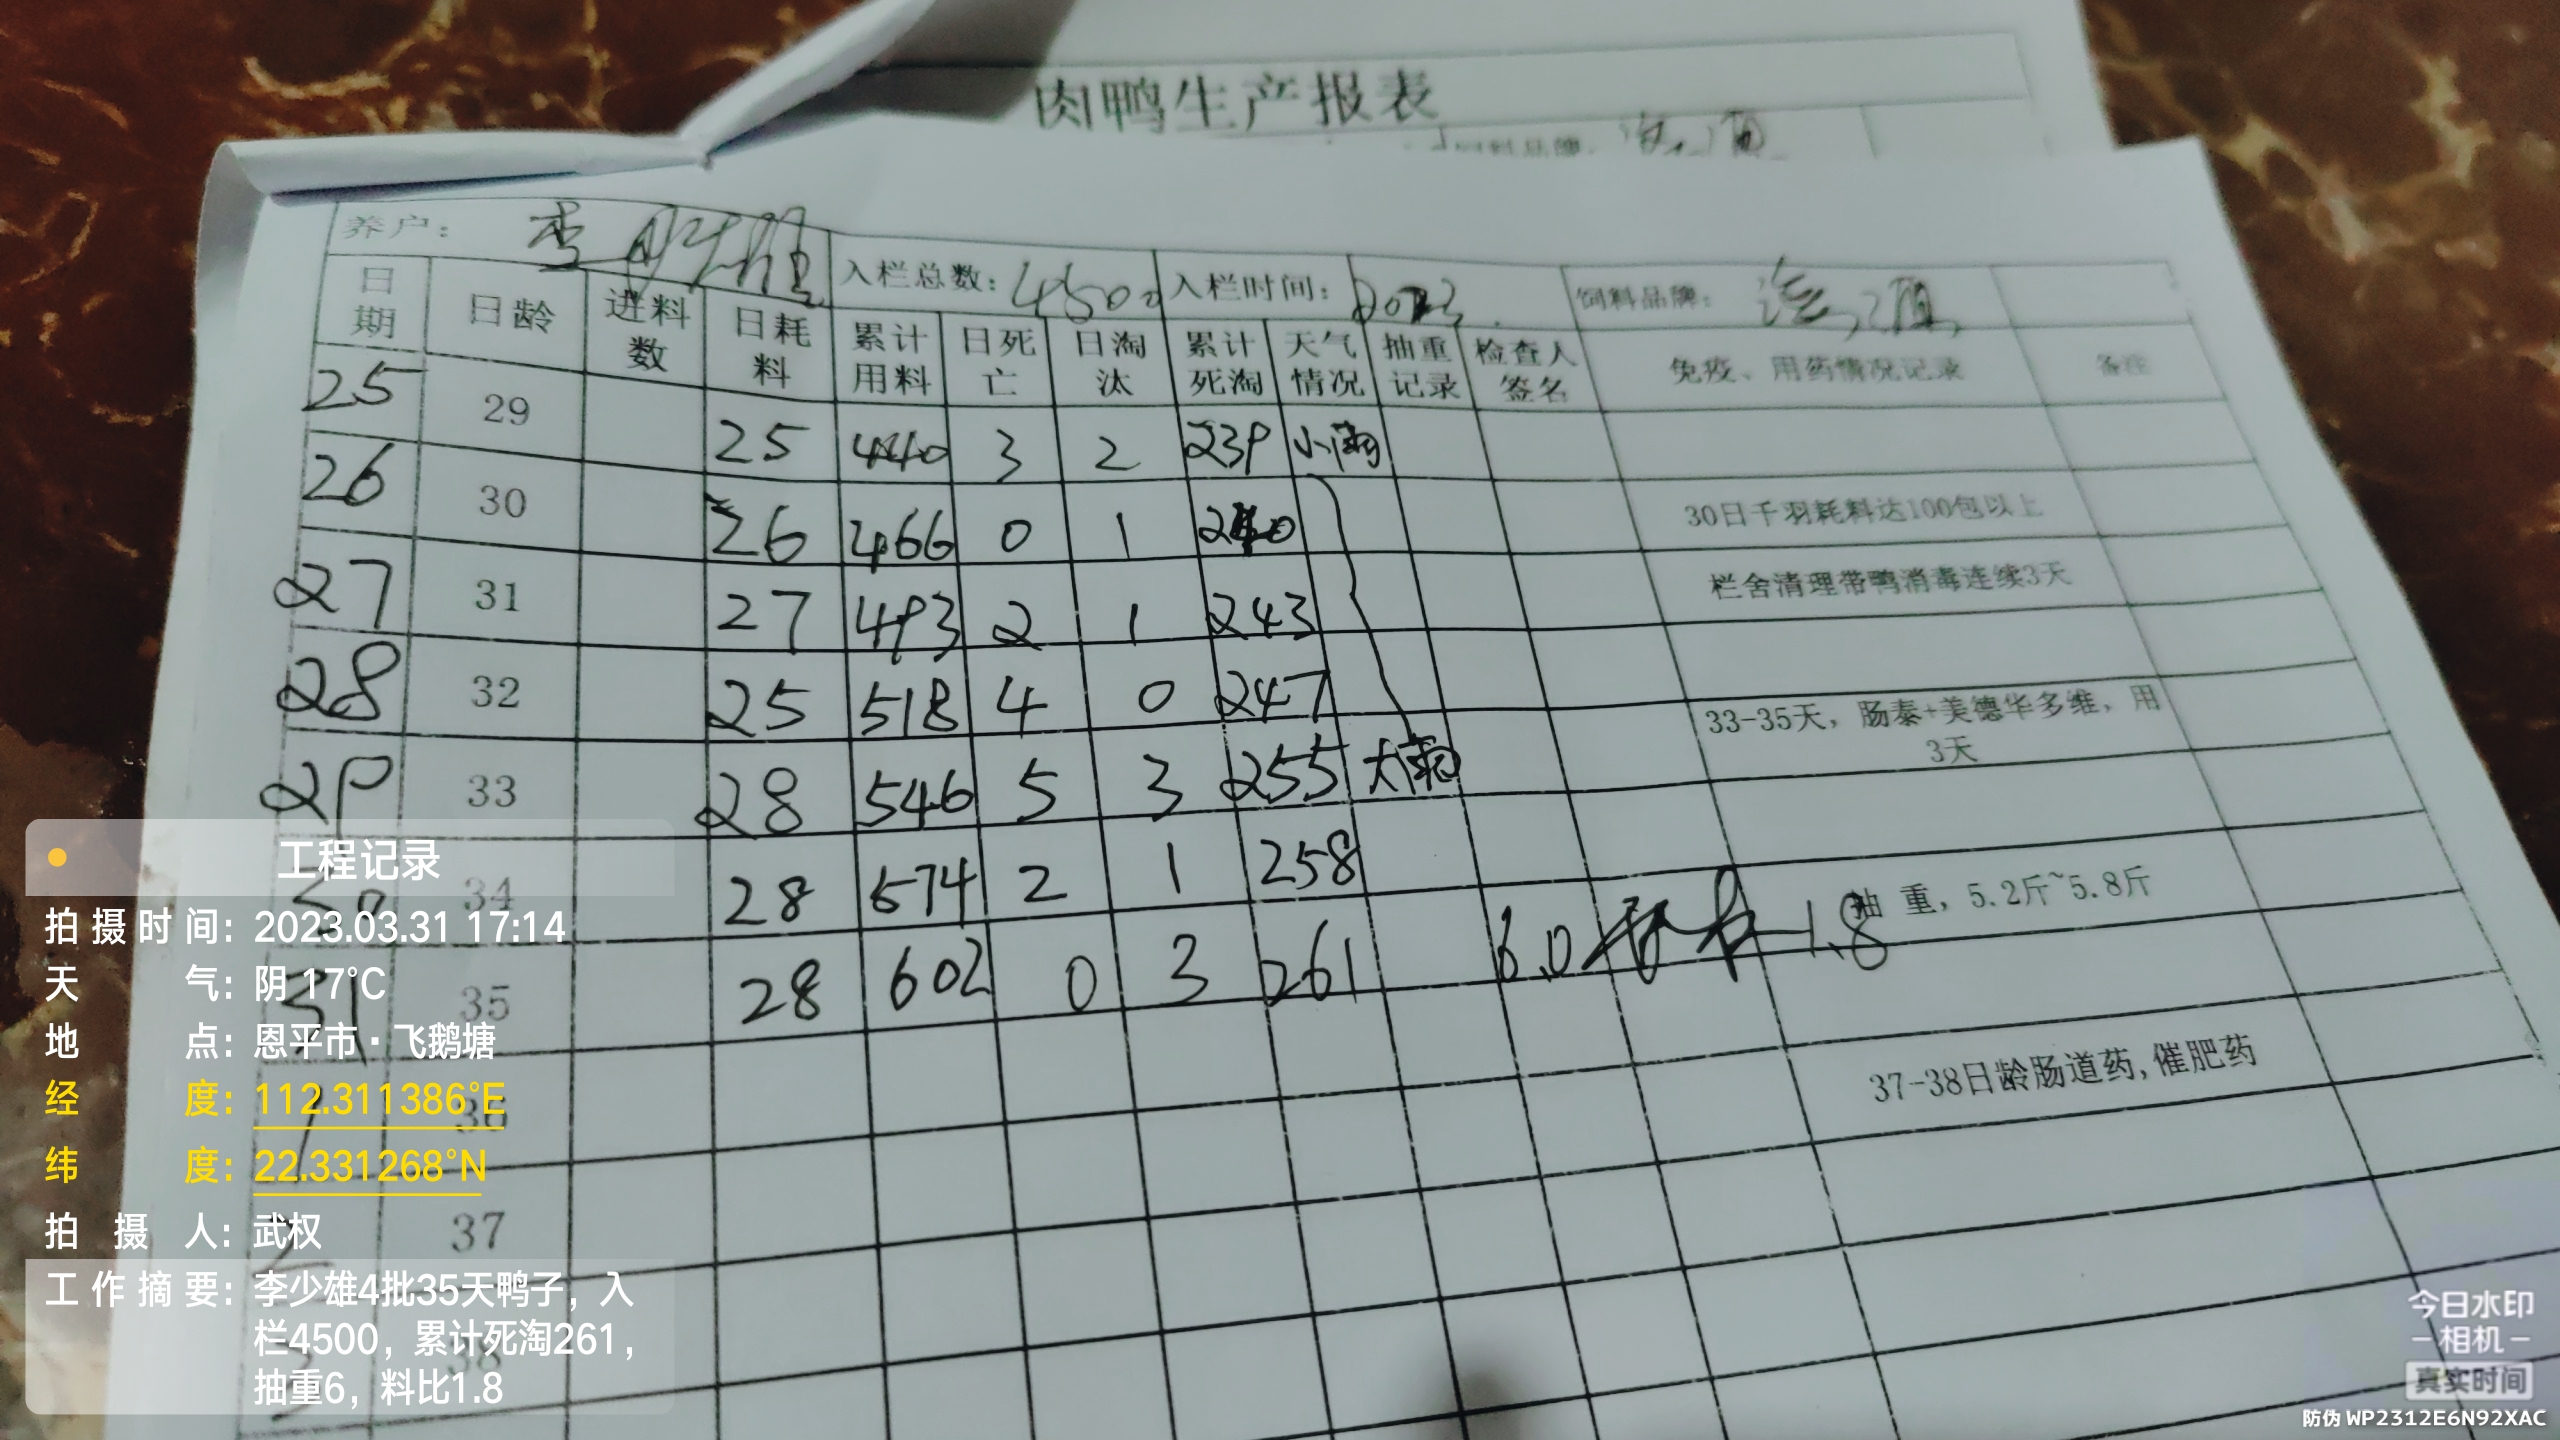 肉鸭生产报表
饲料品牌:
养户: 李少雄 入栏总数: 4500 入栏时间: 2023. 饲料品牌:
日期 日龄 进料数 日耗料 累计用料 日死亡 日淘汰 累计死淘 天气情况 抽重记录 检查人签名 免疫、用药情况记录 备注
25 29 25 440 3 2 239 小雨
26 30 26 466 0 1 240 30日千羽耗料达100包以上
27 31 27 493 2 1 243 栏舍清理带鸭消毒连续3天
28 32 25 518 4 0 247
29 33 28 546 5 3 255 大雨 33-35天，肠泰+美德华多维，用3天
30 34 28 574 2 1 258
31 35 28 602 0 3 261 6.0 1.8 抽 重，5.2斤~5.8斤
1 36
2 37 37-38日龄肠道药,催肥药
3 38
工程记录
拍摄时间: 2023.03.31 17:14
天气: 阴 17°C
地点: 恩平市·飞鹅塘
经度: 112.311386°E
纬度: 22.331268°N
拍摄人: 武权
工作摘要: 李少雄4批35天鸭子，入
栏4500，累计死淘261，
抽重6，料比1.8
今日水印
-相机-
真实时间
防伪 WP2312E6N92XAC